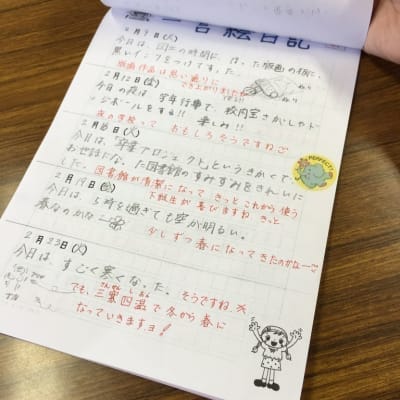 一言絵日記
2月9日(火)
今日は、図工の時間に ほった版画の板に、
黒いインクをつけてすった。
版画作品は思い通りに
でき上がりましたか
2月12日(金)
今日の夜は 学年行事で、校内宝さがしやド
ジボールをする!! 楽しみ!!
夜の学校って おもしろそうですね
2月16日(火)
今日は、「卒業プロジェクト」というきかくで、
お世話になった図書館のすみずみをきれいに
した。図書館が清潔になって きっと これから使う
下級生が 喜びますね きっと
2月19日(金)
今日は、5時を過ぎても空が明るい。
春なのかな〜
少しずつ 春になってきたのかな〜
2月23日(火)
今日は、すごく寒くなった。
そうですね。
でも、三寒四温で 冬から 春に
さんかん しおん
なっていきますヨ!
PERFECT!